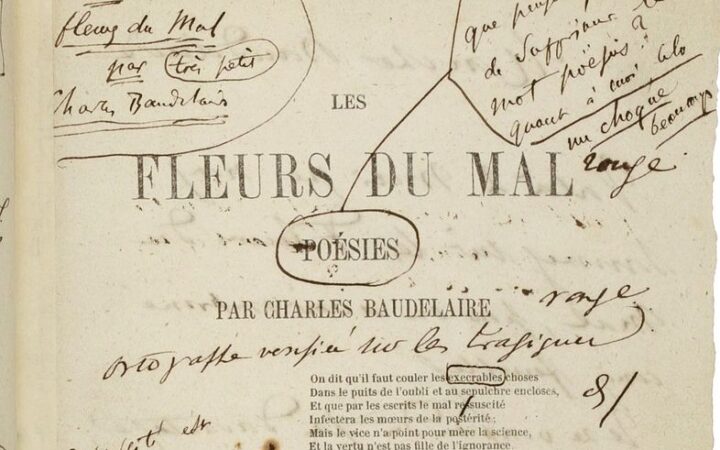 fleurs du Mal
par très petit
Charles Baudelaire
que pense
de supprimer le
mot poësies?
quant à moi cela
me choque
beaucoup
rouge
LES
FLEURS DU MAL
POÉSIES
PAR CHARLES BAUDELAIRE
rouge
sur les tragiques
On dit qu'il faut couler les execrables choses
Dans le puits de l'oubli et au sepulchre encloses,
Et que par les escrits le mal ressuscité
Infectera les mœurs de la postérité;
Mais le vice n'a point pour mère la science,
Et la vertu n'est pas fille de l'ignorance.
est